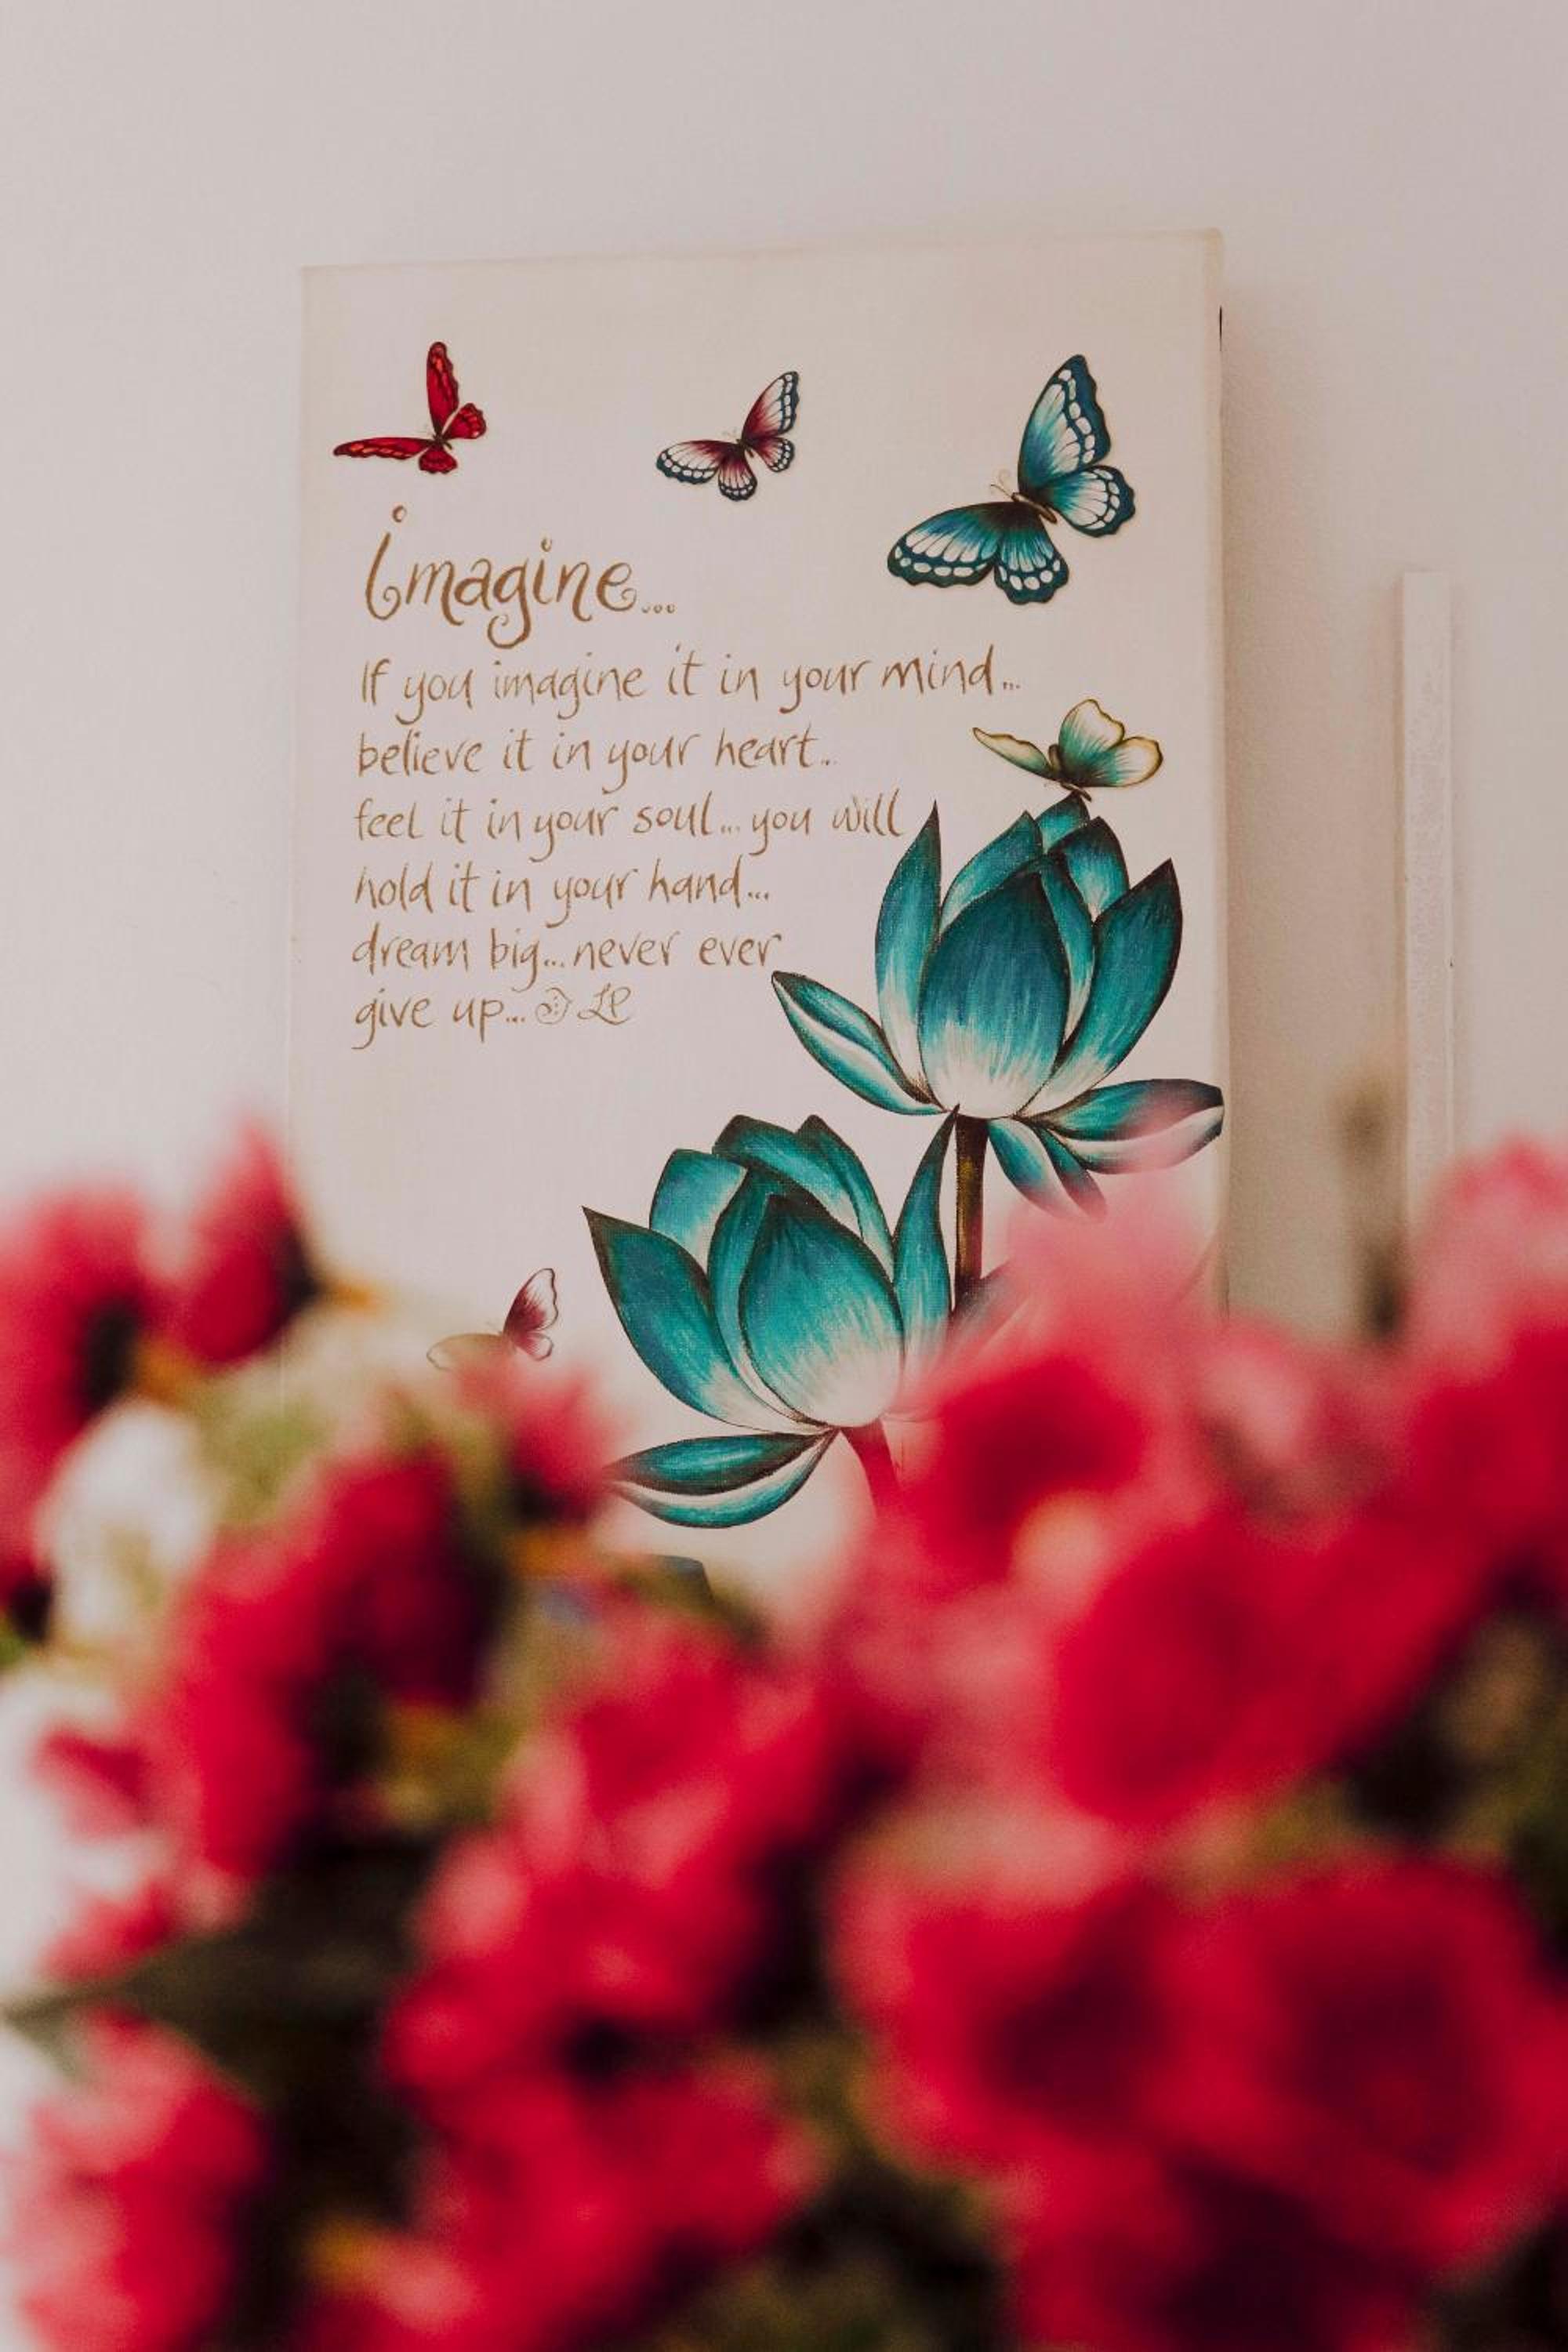 imagine...
If you imagine it in your mind...
believe it in your heart..
feel it in your soul... you will
hold it in your hand...
dream big... never ever
give up... LP